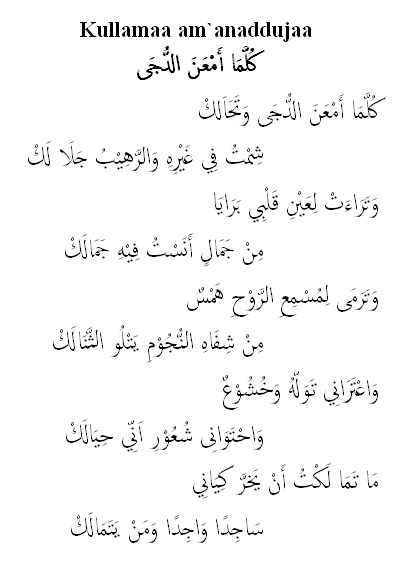 Kullamaa am`anaddujaa
كُلَّمَا أَمْعَنَ الدُّجَى
كُلَّمَا أَمْعَنَ الدُّجَى وَتَحَالَكْ
شِمْتُ فِي غَيْرِهِ وَالرَّهِيْبُ جَلَا لَكْ
وَتَرَاءَتْ لِعَيْنِ قَلْبِي بَرَايَا
مِنْ جَمَالٍ أَنَسْتُ فِيْهِ جَمَالَكْ
وَتَرَمَى لِمُسْمِعِ الرَّوْحِ هَمْسٌ
مِنْ شِفَاهِ النُّجُوْمِ يَتْلُو الثَّنَالَكْ
وَاعْتَرَانِي تَوَلَّهُ وَخُشُوْعٌ
وَاحْتَوَانِى شُعُوْرِ اَنِّي حِيَالَكْ
مَا تَمَا لَكْتُ أَنْ يَخَرَّ كِيَانِي
سَاجِدًا وَاجِدًا وَمَنْ يَتَمَالَكْ